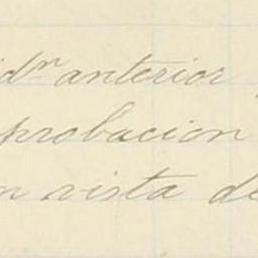 idⁿ anterior
probacion
n vista de